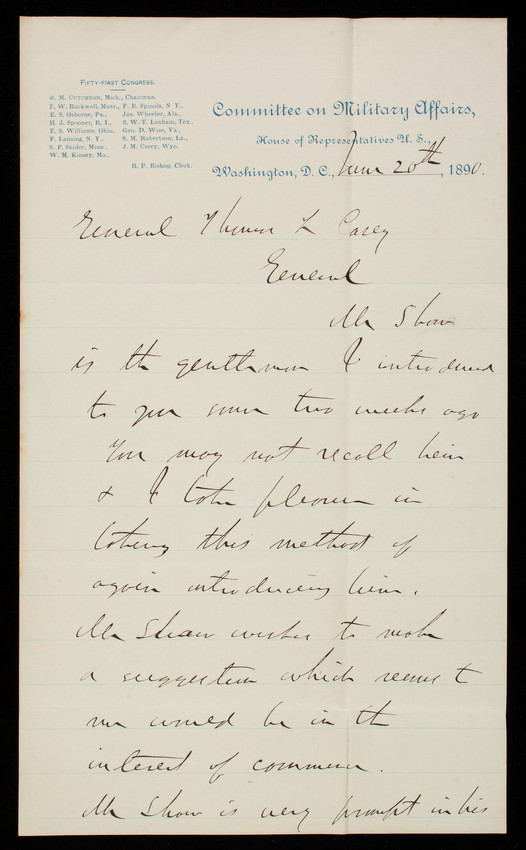 FIFTY-FIRST CONGRESS.
B. M. CUTCHEON, Mich., Chairman.
F. W. Rockwell, Mass., F. B. Spinola, N. Y.,
E. S. Osborne, Pa., Jos. Wheeler, Ala.,
H. J. Spooner, R. I., S. W. T. Lanham, Tex.,
E. S. Williams, Ohio, Geo. D. Wise, Va.,
F. Lansing, N. Y., S. M. Robertson, La.,
S. P. Snider, Minn., J. M. Carey, Wyo.
W. M. Kinsey, Mo.,
R. P. Bishop, Clerk.
Committee on Military Affairs,
House of Representatives U. S.,
Washington, D. C., June 20th, 1890.
General Thomas L Casey
General
Mr Shaw
is the gentleman I introduced
to you some two weeks ago
You may not recall him
& I take pleasure in
taking this method of
again introducing him.
Mr Shaw wishes to make
a suggestion which seems to
me would be in the
interest of commerce.
Mr Shaw is very prompt in his